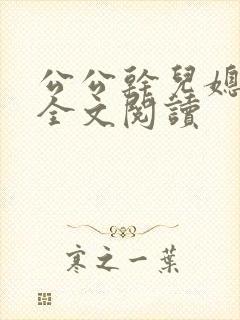 公公幹兒媳
全文閱讀
寒之一葉